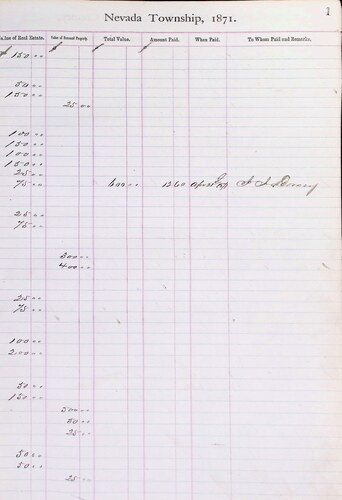 Nevada Township, 1871.
1
Value of Real Estate. Value of Personal Property. Total Value. Amount Paid. When Paid. To Whom Paid and Remarks.
$ 150 00 $ $ $
50 00
150 00
25 00
100 00
150 00
100 00
150 00
25 00
75 00 600 00 12 60
25 00
75 00
300 00
400 00
25 00
75 00
100 00
200 00
50 00
150 00
500 00
50 00
25 00
50 00
50 00
25 00